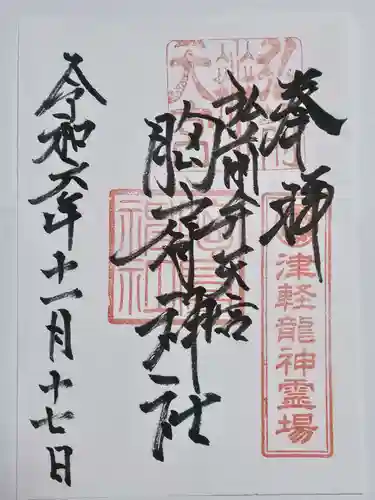 奉拝
弘前弁天宮
胸肩神社
令和元年十一月十七日
津軽龍神霊場